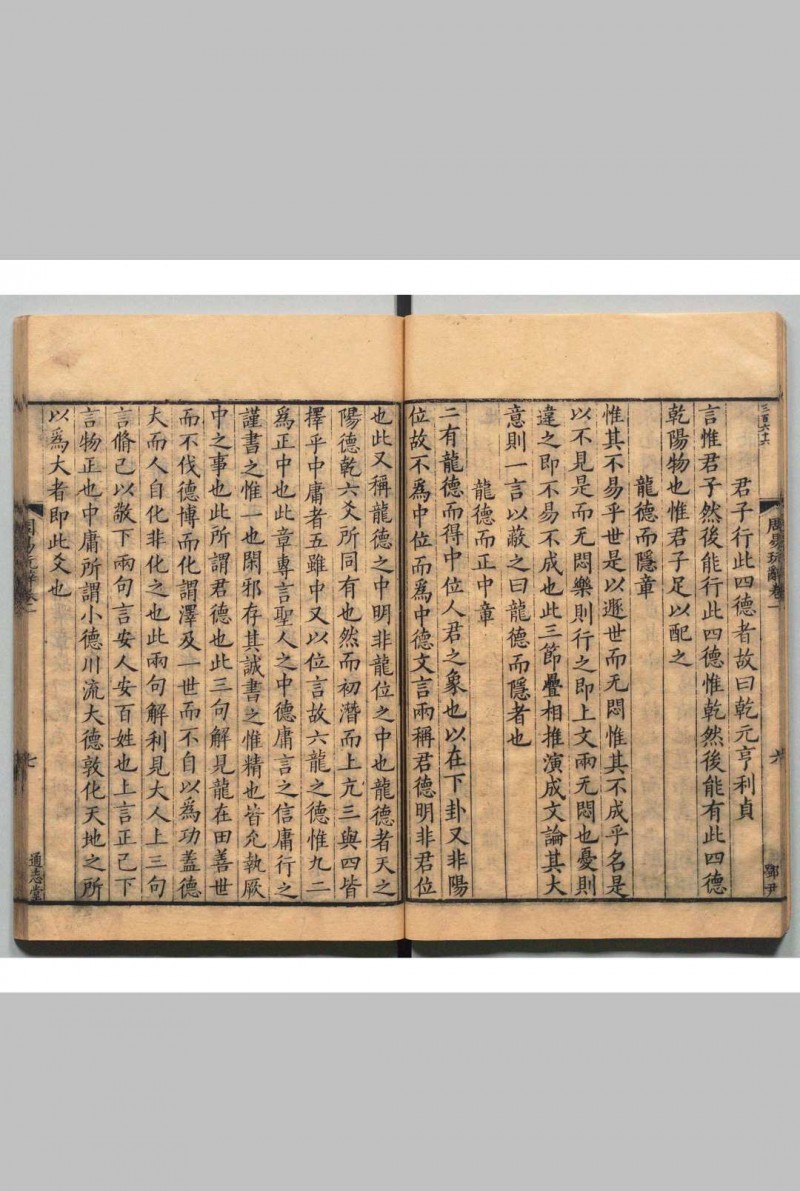 三百六十六
周易玩辭卷一
六
鄧尹
君子行此四德者故曰乾元亨利貞
言惟君子然後能行此四德惟乾然後能有此四德
乾陽物也惟君子足以配之
龍德而隱章
惟其不易乎世是以遯世而无悶惟其不成乎名是
以不見是而无悶樂則行之即上文兩无悶也憂則
違之即不易不成也此三節疊相推演成文論其大
意則一言以蔽之曰龍德而隱者也
龍德而正中章
二有龍德而得中位人君之象也以在下卦又非陽
位故不為中位而為中德文言兩稱君德明非君位
也此又稱龍德之中明非龍位之中也龍德者天之
陽德乾六爻所同有也然而初潛而上亢三與四皆
擇乎中庸者五雖中又以位言故六龍之德惟九二
為正中也此章專言聖人之中德庸言之信庸行之
謹書之惟一也閑邪存其誠書之惟精也皆允執厥
中之事也此所謂君德也此三句解見龍在田善世
而不伐德博而化謂澤及一世而不自以為功蓋德
大而人自化非化之也此兩句解利見大人上三句
言脩己以敬下兩句言安人安百姓也上言正己下
言物正也中庸所謂小德川流大德敦化天地之所
以為大者即此爻也
周易玩辭卷一
七
通志堂